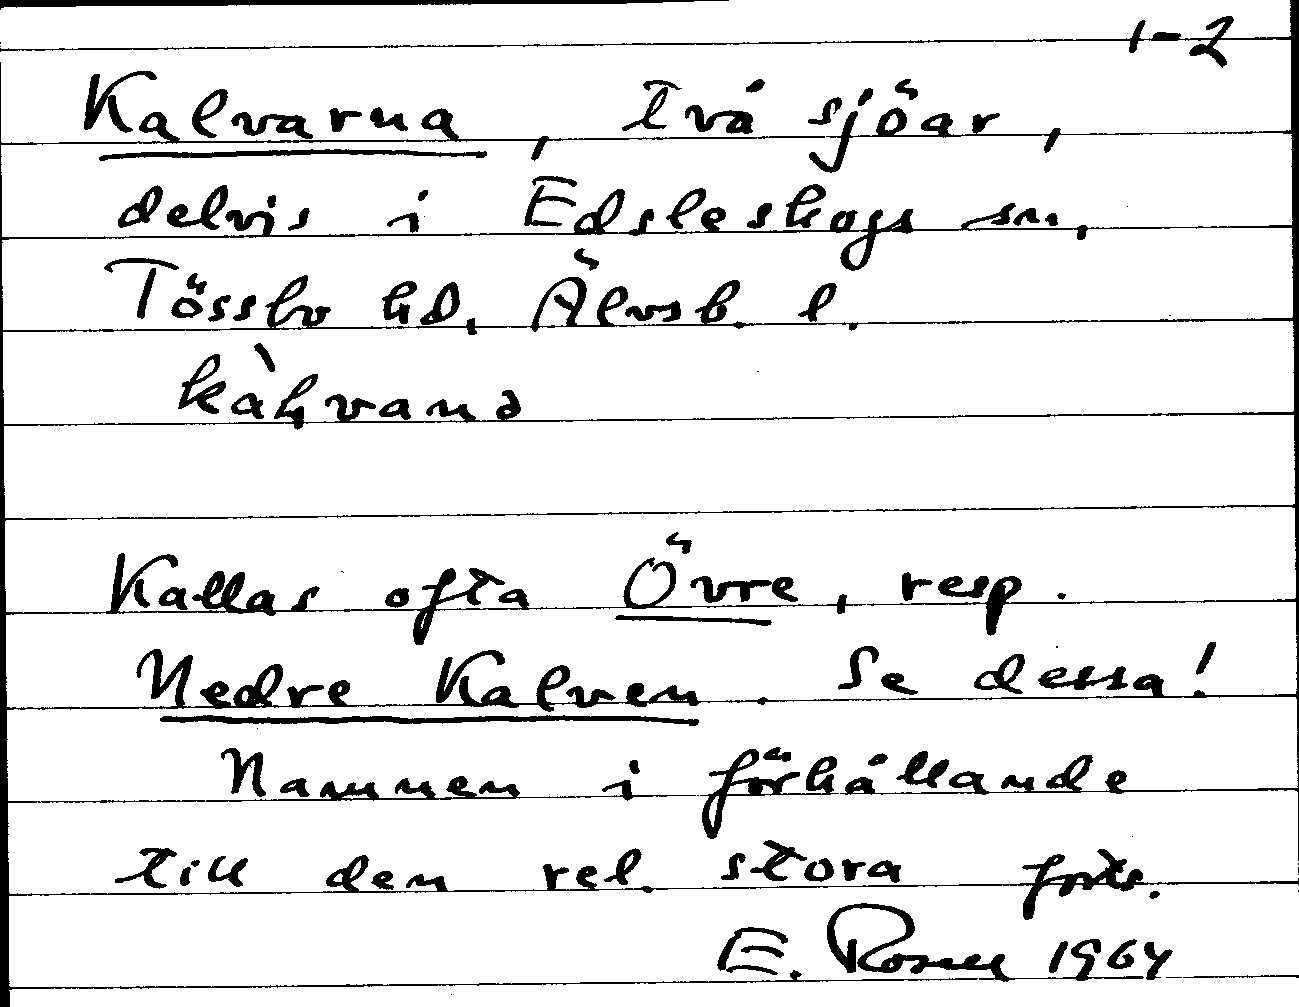 1-2
Kalvarna, två sjöar,
delvis i Edsleskogs sn,
Tössbo hd, Älvsb. l.
Kallas ofta Övre, resp.
Nedre Kalven. Se dessa!
Namnen i förhållande
till den rel. stora forts.
E. 1964